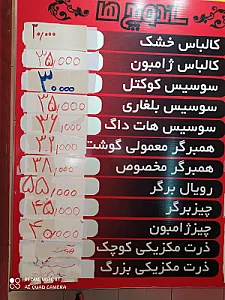 ساندویچ ها
کالباس خشک ۲۰/۰۰۰
کالباس ژامبون ۳۵/۰۰۰
سوسیس کوکتل ۳۰/۰۰۰
سوسیس بلغاری ۳۵/۰۰۰
سوسیس هات داگ ۳۶/۰۰۰
همبرگر معمولی گوشت ۳۲/۰۰۰
همبرگر مخصوص ۳۸/۰۰۰
رویال برگر ۵۵/۰۰۰
چیزبرگر ۴۵/۰۰۰
چیزژامبون ۴۰/۰۰۰
ذرت مکزیکی کوچک
ذرت مکزیکی بزرگ
REDMI NOTE 8T
AI QUAD CAMERA